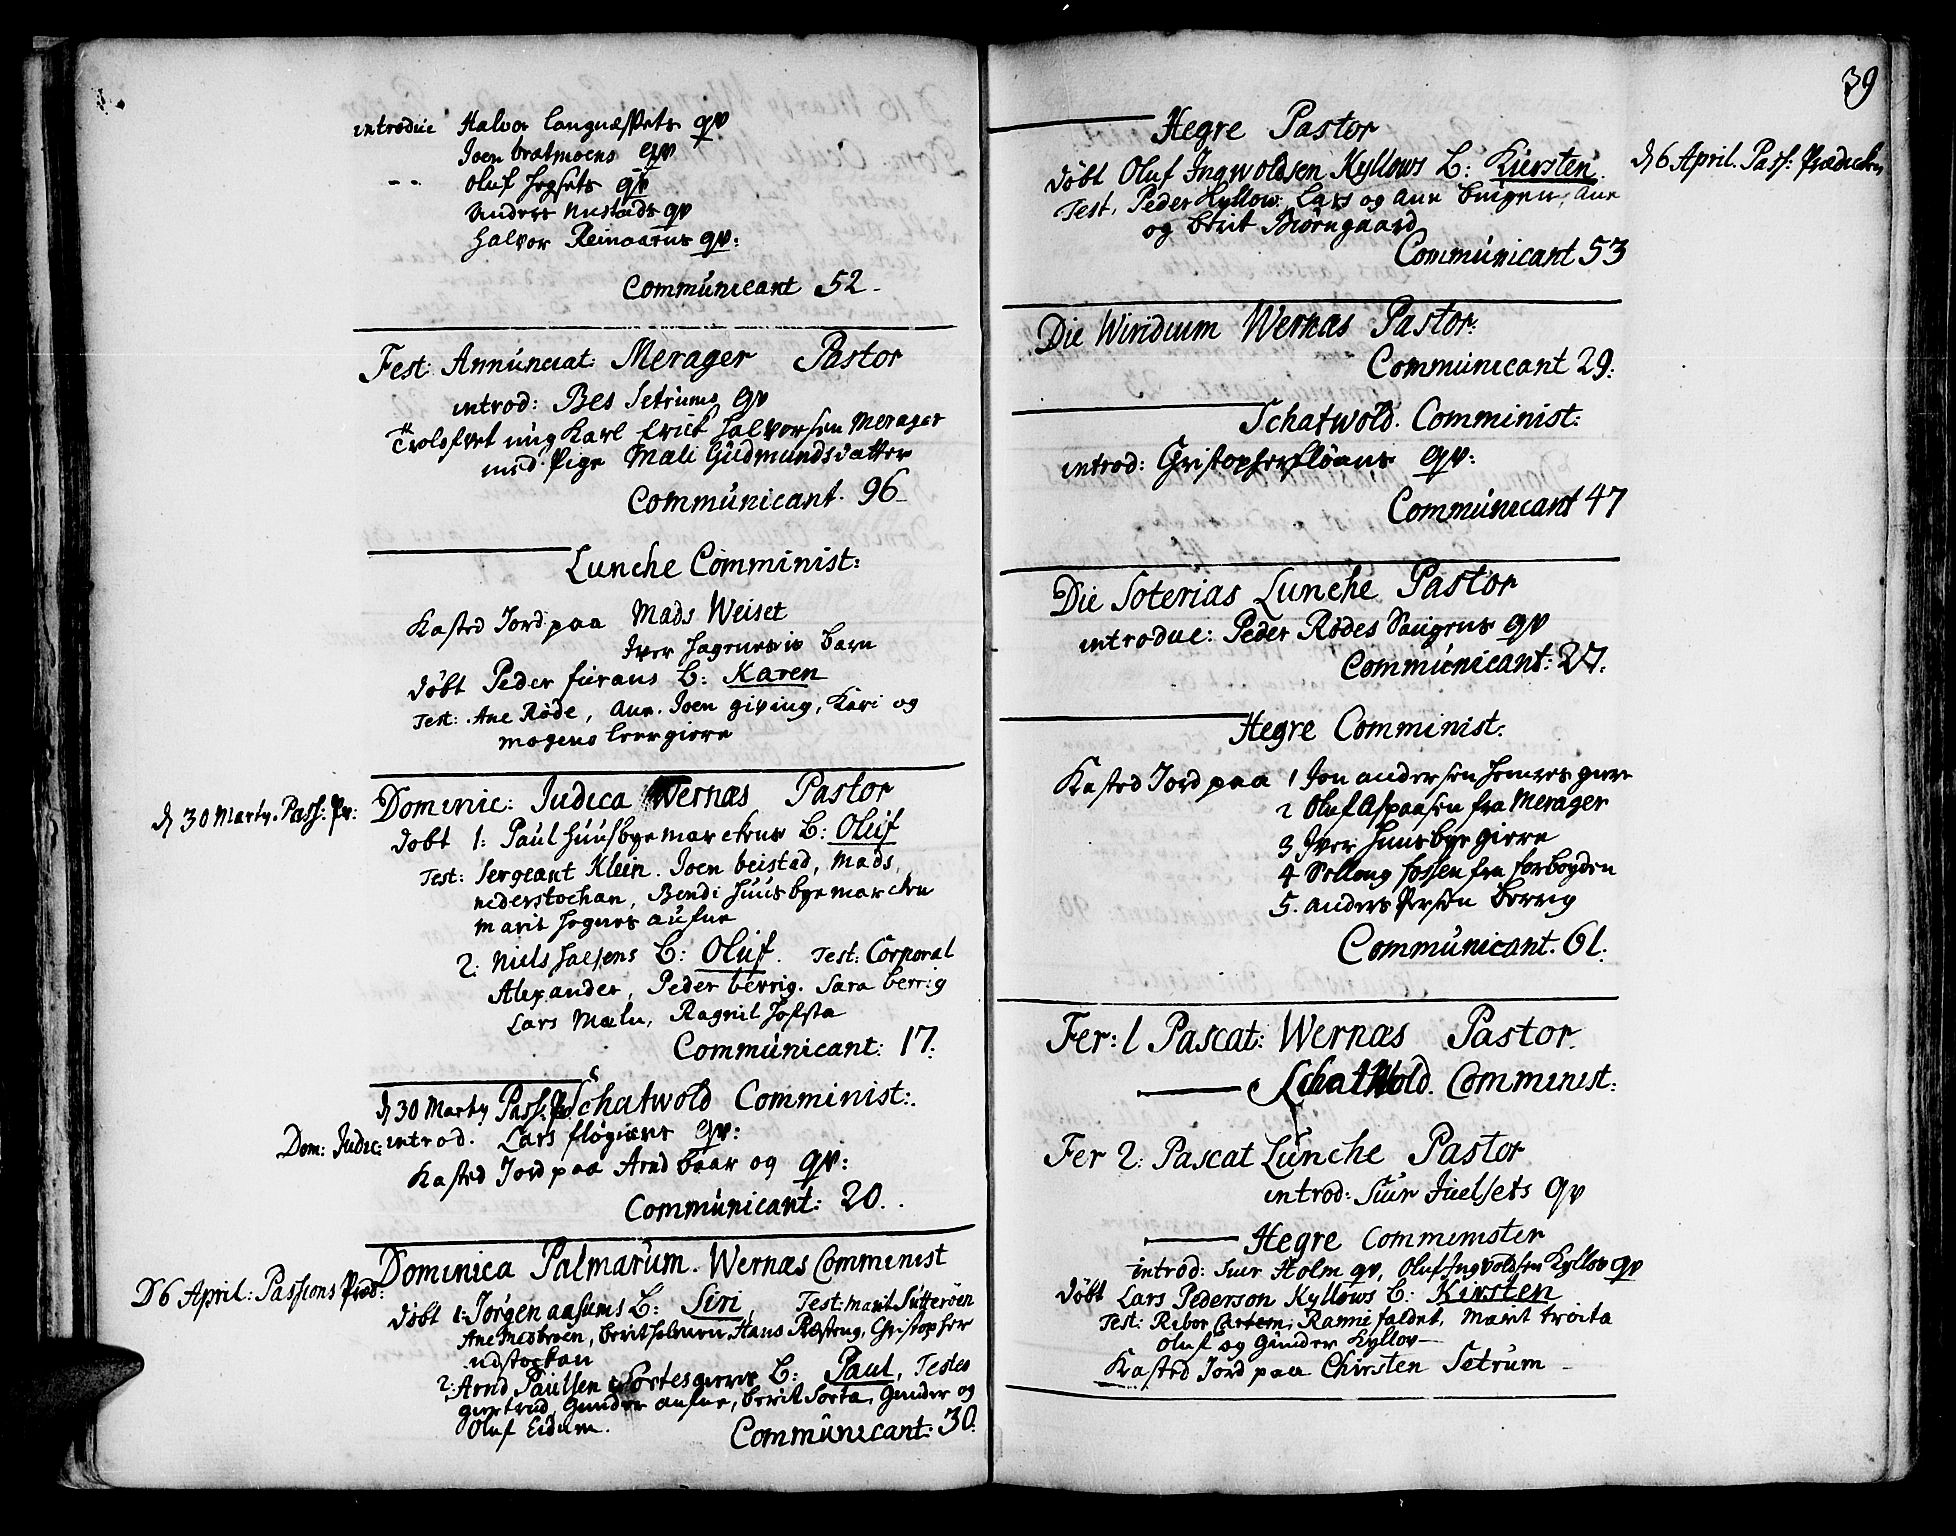 introduc Halvor Langnæssets qv
Joen bratmoens qv
- - Oluf Hegsets qv
Anders Mustads qv
Halvor Reinaarns qv:
Communicant 52
Fest: Annunciat: Merager Pastor
introd: Bes Setrums qv
Trolofvet ung Karl Erick Halvorsen Merager
med Pige Mali Gudmundsdatter
Communicant. 96
Lunche Comminist:
Kasted Jord paa Mads Weiset
Iver Hagenes barn
døbt Peder furans B: Karen
Test: Ane Røde, Ane. Joen giving, Kari og
mogens
d 30 Marty. Pass: Pr:
Dominic: Judica Wernæs Pastor
døbt 1: Paul Huusbyemarckens B: Oluf
Test: Sergeant Klein. Joen beistad, Mads,
nederstochan, Bendi Huusbyemarcken
Marit Hognes aufne
2: Niels Halsens B: Oluf. Test: Corporal
Alexander, Peder berrig. Sara berrig
Lars Mælu, Ragnil Hofsta
Communicant: 17.
d 30 Marty Pass: Pr Schatwold Comminist:
Dom: Judic: introd. Lars fløgians qv:
Kasted Jord paa Arnd baar og qv:
Communicant: 20.
D 6 April: Passions Præd:
Dominica Palmarum. Wernæs Comminist
døbt 1: Jørgen aasums B: Siri, Test: Marit Sutterøen
Ane, berit, Hans Ræsteng, Christopher
udstockan
2: Arnd Paulsen B: Paul, Testes
giertrud, Gunder aufne, berit Sorta, Gunder og
Oluf Eidum.
Communicant: 30.
39
Hegre Pastor
d 6 April. Pass: Prædicken
døbt Oluf Ingwoldsen Kyllows B: Kiersten.
Test. Peder Kyllow. Lars og Ane, Ane
og berit Biørngaard
Communicant 53
Die Wiridium Wernæs Pastor:
Communicant 29.
Schatwold. Comminist:
introd: Christopher fløans qv:
Communicant 47
Die Soterias Lunche Pastor
introduc: Peder Rødes Vangens qv
Communicant: 27.
Hegre Comminist:
Kasted Jord paa 1 Jon andersen
2 Oluf Aspaasen fra Merager
3 Iver Huusbye giere
4 Solloug fossen fra forbogden
5. anders Persøn berrig
Communicant. 61.
Fer: 1 Pascat: Wernæs Pastor.
Schatwold. Comminist:
Fer 2: Pascat Lunche Pastor
introd: Siur Juelsets qv
Hegre Comminister
introd: Siur Holm qv, Oluf Ingvoldsen Kyllov qv
døbt Lars Pederson Kyllows B: Kirsten
Test: Ribor, Ranni faldet, Marit troita
Oluf og Gunder Kyllov
Kasted Jord paa Chirsten Setrum